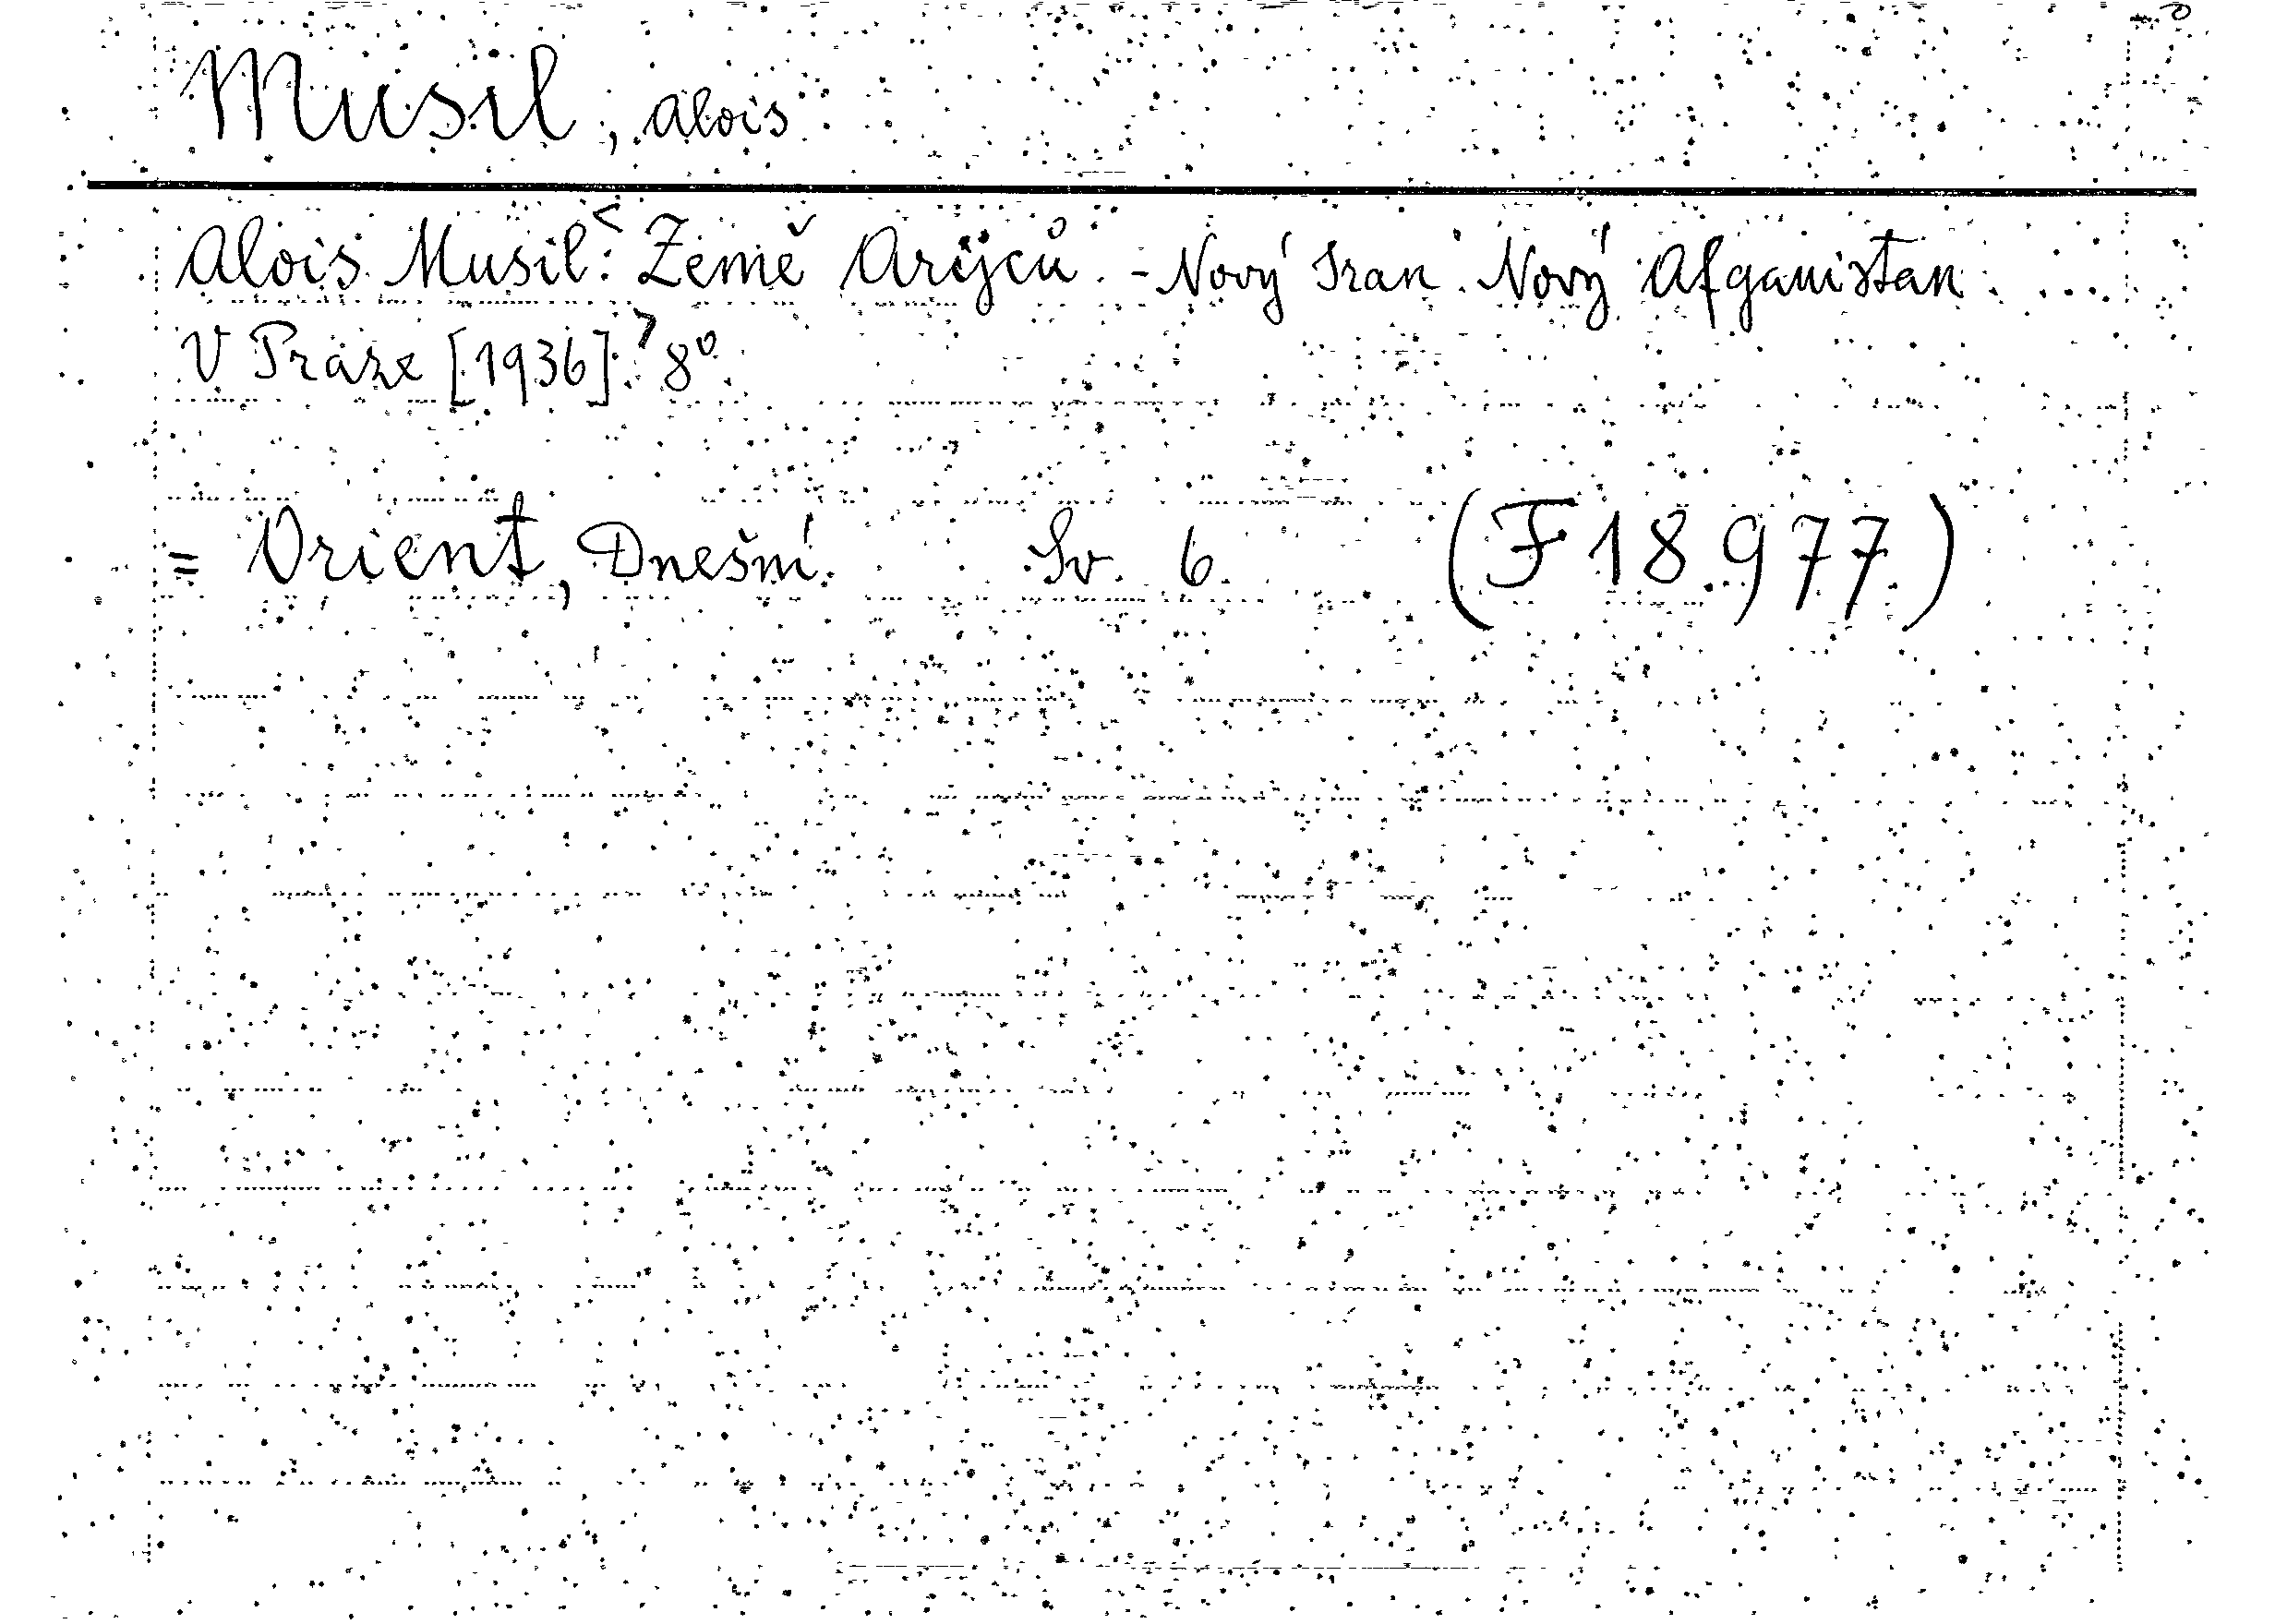 Musil, Alois
Alois Musil: <Země Arijců. - Nový Iran. Nový Afganistan. ...
V Praze [1936].> 8°
= Orient, Dnešní. Sv. 6. (F 18.977.)